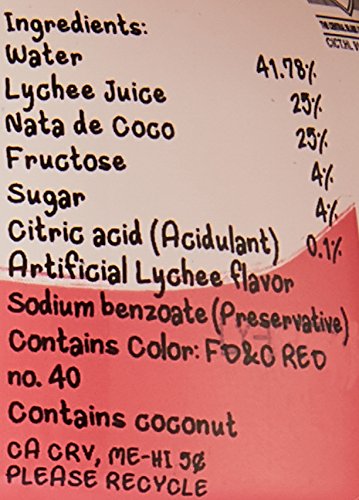 Ingredients:
Water 41.78%
Lychee Juice 25%
Nata de Coco 25%
Fructose 4%
Sugar 4%
Citric acid (Acidulant) 0.1%
Artificial Lychee flavor
Sodium benzoate (Preservative)
Contains Color: FD&C RED
no. 40
Contains coconut
CA CRV, ME-HI 5¢
PLEASE RECYCLE